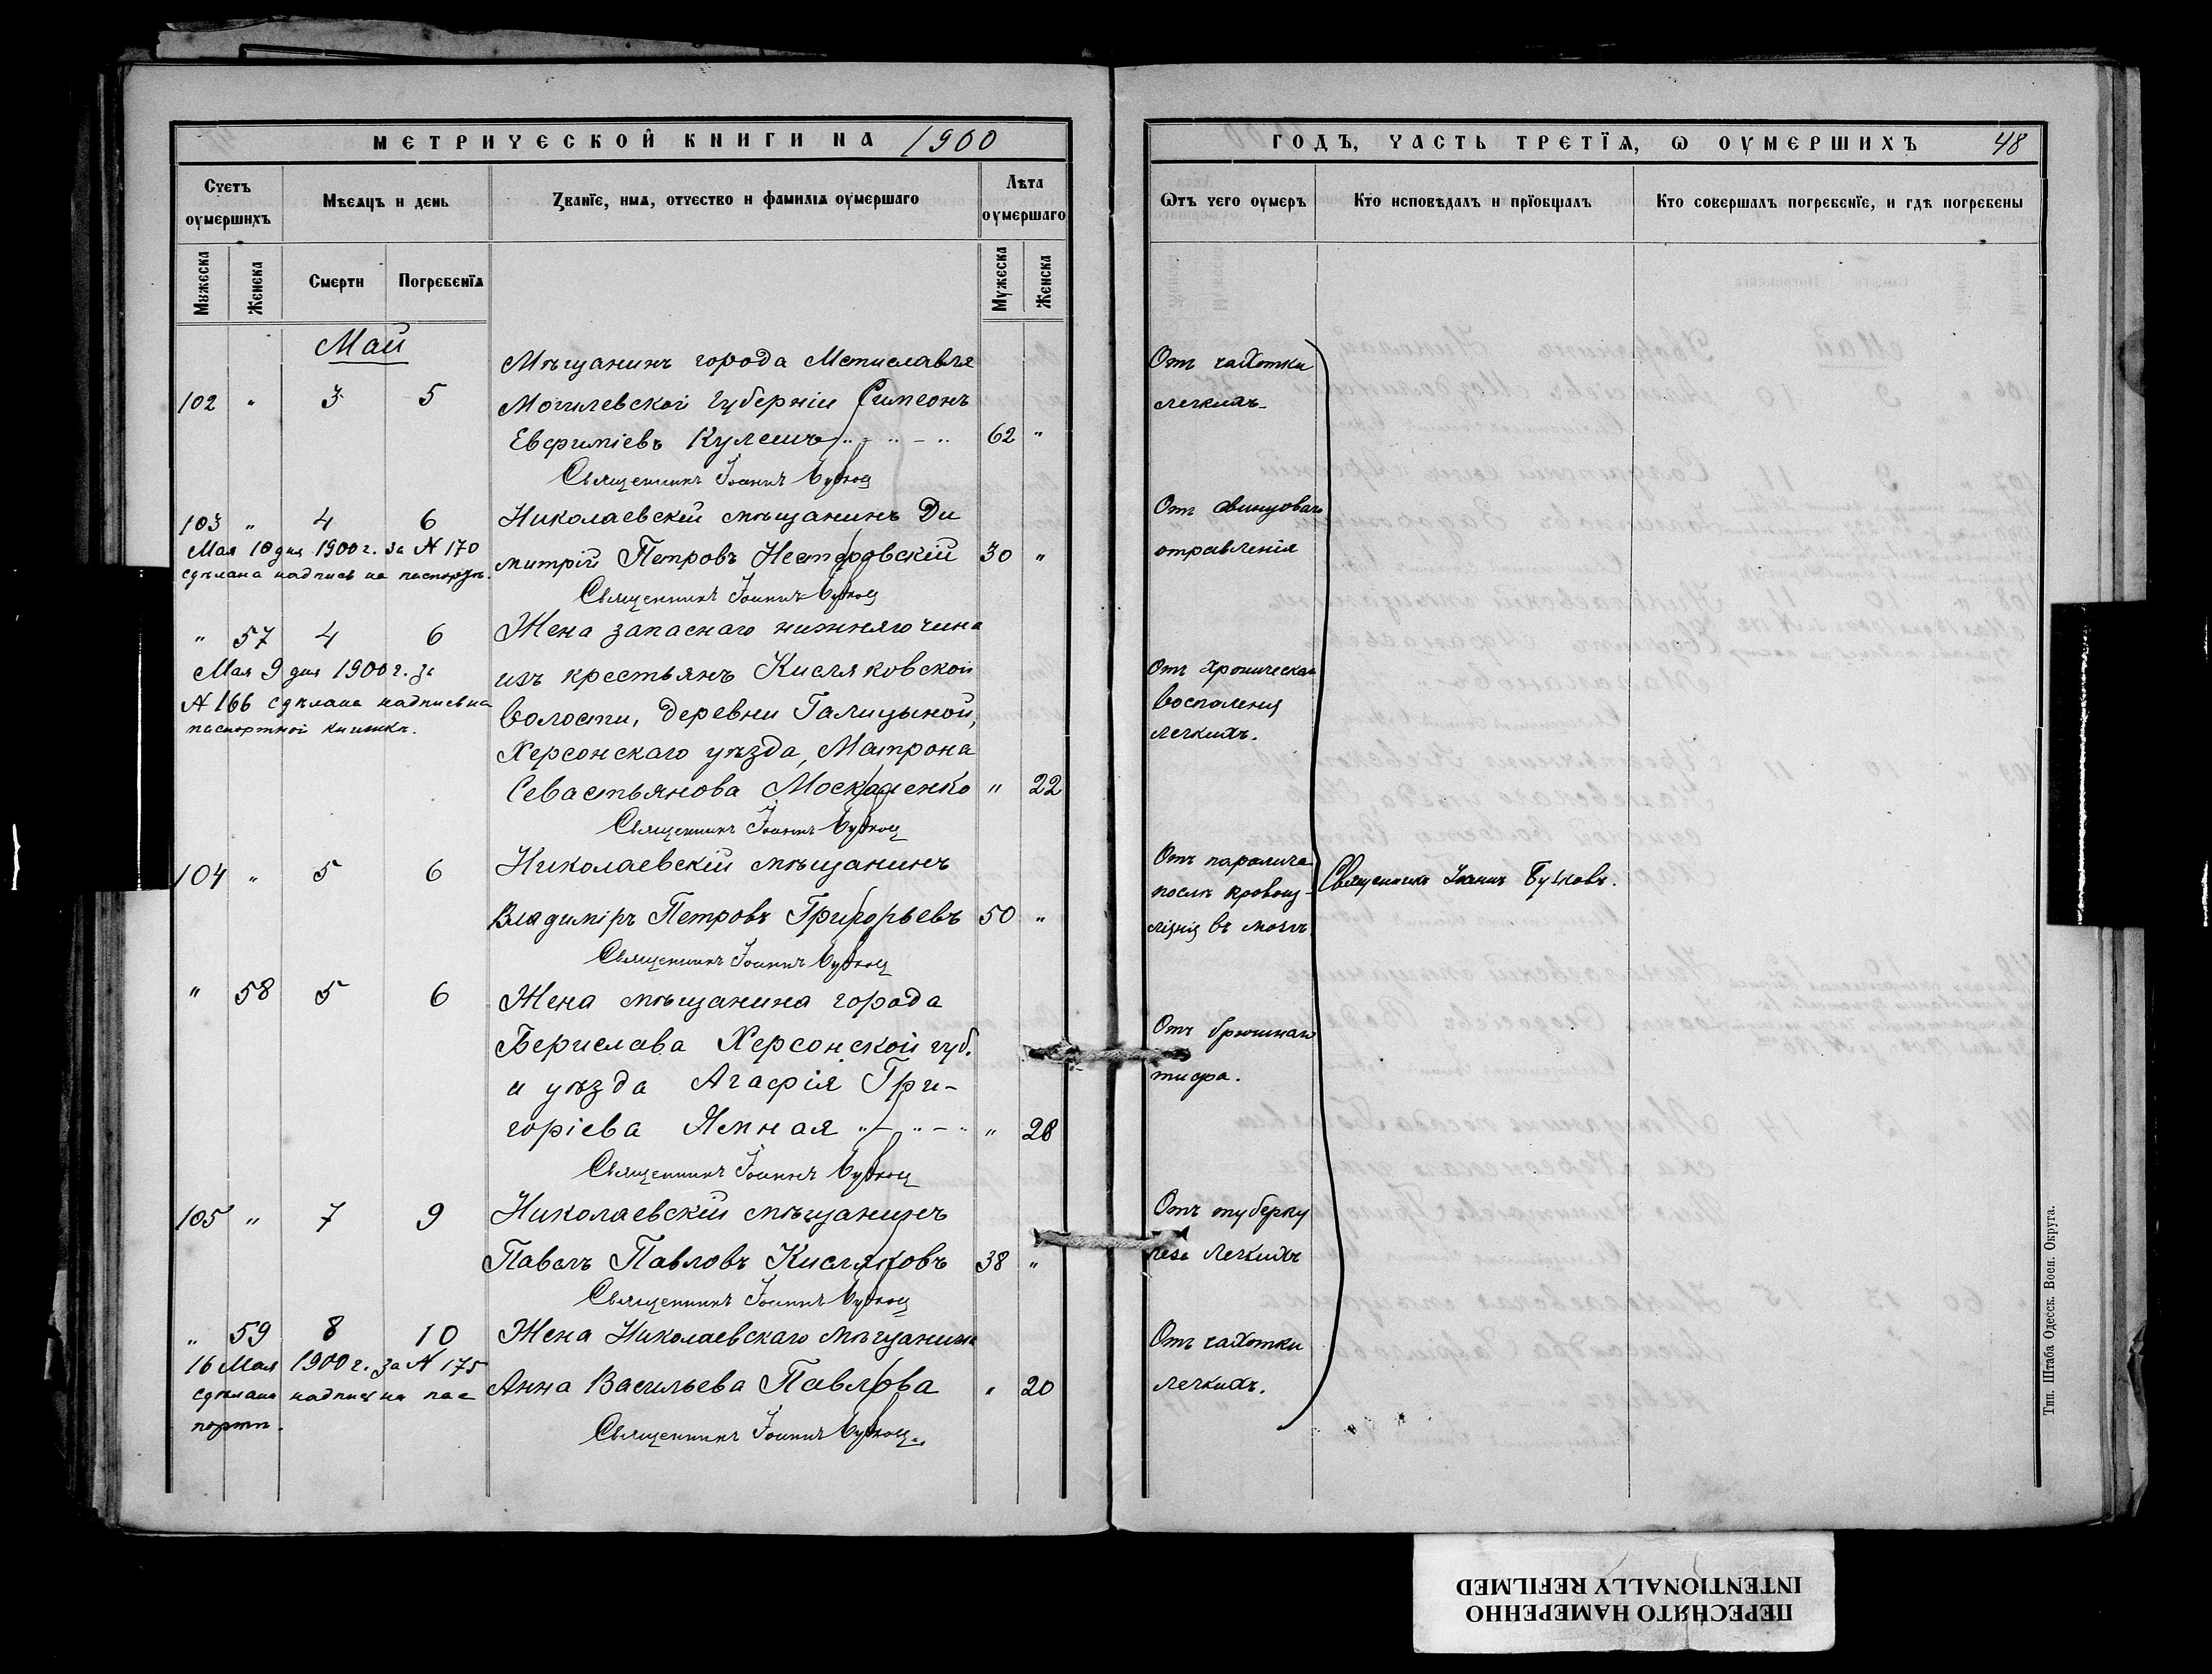 МЕТРИЧЕСКОЙ КНИГИ НА 1900
Счетъ оумершихъ
Мѣсяцъ и день
Званїе, имя, отчество и фамилїя оумершаго
Лѣта оумершаго
Мужеска
Женска
Смерти
Погребенїя
Мужеска
Женска
Май
Мѣщанинъ города Мстиславля
102 " 3 5 Могилевской губерніи Симеонъ
Евфиміевъ Кулешъ 62 "
Священникъ Іоаннъ Бутковъ
103 " 4 6 Николаевскій мѣщанинъ Ди
Мая 10 дня 1900 г. за № 170
митрій Петровъ Нестеровскій 30 "
сдѣлана надпись на паспортѣ.
Священникъ Іоаннъ Бутковъ
" 57 4 6 Жена запаснаго нижняго чина
Мая 9 дня 1900 г. за
изъ крестьянъ Кисляковской
№ 166 сдѣлана надпись на
волости, деревни Галицыной,
паспортной книжкѣ.
Херсонскаго уѣзда, Матрона
Севастьянова Москаленко " 22
Священникъ Іоаннъ Бутковъ
104 " 5 6 Николаевскій мѣщанинъ
Владиміръ Петровъ Григорьевъ 50 "
Священникъ Іоаннъ Бутковъ
" 58 5 6 Жена мѣщанина города
Берислава Херсонской губ.
и уѣзда Агафія Гри-
горіева Ямная " 28
Священникъ Іоаннъ Бутковъ
105 " 7 9 Николаевскій мѣщанинъ
Павелъ Павловъ Кисляковъ 38 "
Священникъ Іоаннъ Бутковъ
" 59 8 10 Жена Николаевскаго мѣщанина
16 Мая 1900 г. за № 175
Анна Васильева Павлова " 20
сдѣлана надпись на пас
портѣ.
Священникъ Іоаннъ Бутковъ.
ГОДЪ, ЧАСТЬ ТРЕТЇЯ, Ѡ ОУМЕРШИХЪ 48
Ѡтъ чего оумеръ
Кто исповѣдалъ и прїобщалъ
Кто совершалъ погребенїе, и гдѣ погребены
Отъ чахотки
легкихъ.
Отъ свинцоваго
отравленія
Отъ хроническаго
воспаленія
легкихъ.
Отъ паралича
послѣ кровоиз-
ліянія въ мозгъ.
Священникъ Іоаннъ Бутковъ.
Отъ брюшнаго
тифа.
Отъ туберку
леза легкихъ
Отъ чахотки
легкихъ.
Тип. Штаба Одесск. Воен. Округа.
ПЕРЕСНЯТО НАМЕРЕННО
INTENTIONALLY REFILMED